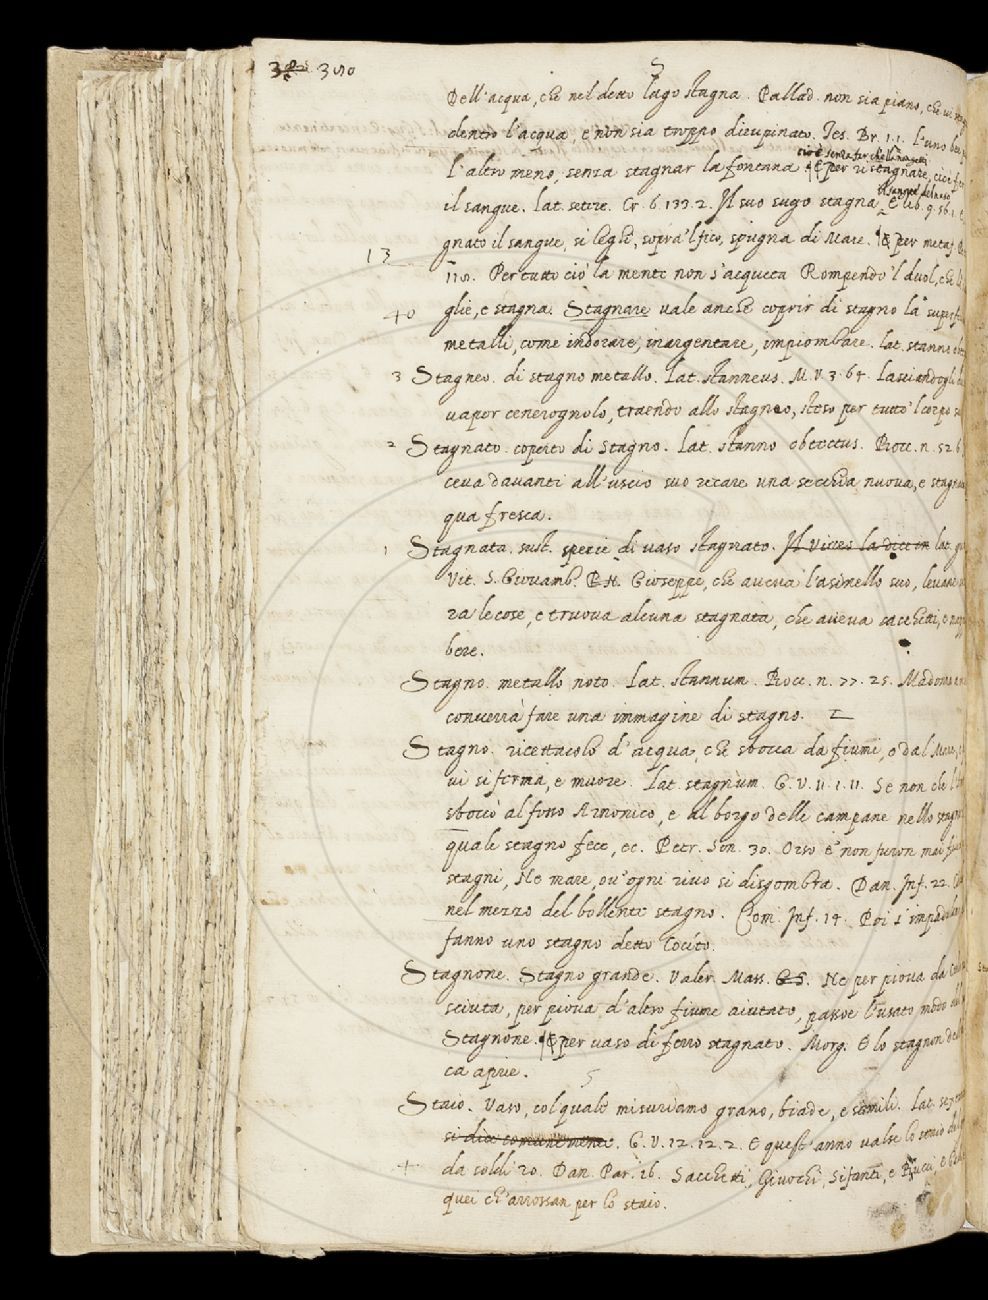 350
Dell'acqua, che nel detto lago stagna. Pallad. non sia piano, che vi
dentro l'acqua, e non sia troppo dirupinato. Tes. Br. 1.1. l'uno
cioè senza far che
l'altro meno, senza stagnar la fontana. E per ristagnare, cioè
il sangue del naso
il sangue. Lat. Cr. 6. 133. 2. Il suo sugo stagna E lib. 9. 56. 1.
gnato il sangue, si leghi, sopra 'l fico, spugna di Mare. E per metaf.
13
Per tutto ciò la mente non s'acqueta Rompendo 'l duol, che
40
glie, e stagna. Stagnare vale anche coprir di stagno la
metalli, come indorare, inargentare, impiombare. Lat. stanno
3 Stagneo. di stagno metallo. Lat. stanneus. M. V. 3. 64. Lasciandogli
vapor cenerognolo, traendo allo stagneo, steso per tutto 'l corpo
2 Stagnato. coperto di stagno. Lat. stanno obtectus. Bocc. n. 52. 6
ceva davanti all'uscio suo recare una secchia nuova, e
qua fresca.
1 Stagnata. sust. spezie di vaso stagnato. lat.
Vit. S. Giovamb. Gioseppe, che aveva l'asinello suo,
ra le cose, e truova alcuna stagnata, che aveva sacchetti, e
bere.
Stagno. metallo noto. Lat. stannum. Bocc. n. 77. 25. Madonna
converrà fare una immagine di stagno.
Stagno. ricettacolo d'acqua, che sbocca da fiumi, o dal Mare,
vi si ferma, e muore. Lat. stagnum. G. V. 11. 1. 11. Se non che
sboccò al fosso Arnonico, e al borgo delle campane nello
quale stagno fece, ec. Petr. Son. 30. Orso e' non furon mai
stagni, Ne mare, ov' ogni rivo si disgombra. Dan. Inf. 22.
nel mezzo del bollente stagno. Com. Inf. 14. Poi
fanno uno stagno detto Cocito.
Stagnone. Stagno grande. Valer. Mass. Ne per piova da
sciuta, per piova d'altro fiume aiutato, passoe l'usato modo
Stagnone. E per vaso di ferro stagnato. Morg. E lo stagnon
ca aprie.
Staio. Vaso, col quale misuriamo grano, biade, e simili. Lat.
si dice comunemente. G. V. 12. 12. 2. E quest'anno valse lo
da soldi 20. Dan. Par. 16. Sacchetti, Giuochi, Sifanti, e
quei ch'arrossan per lo staio.